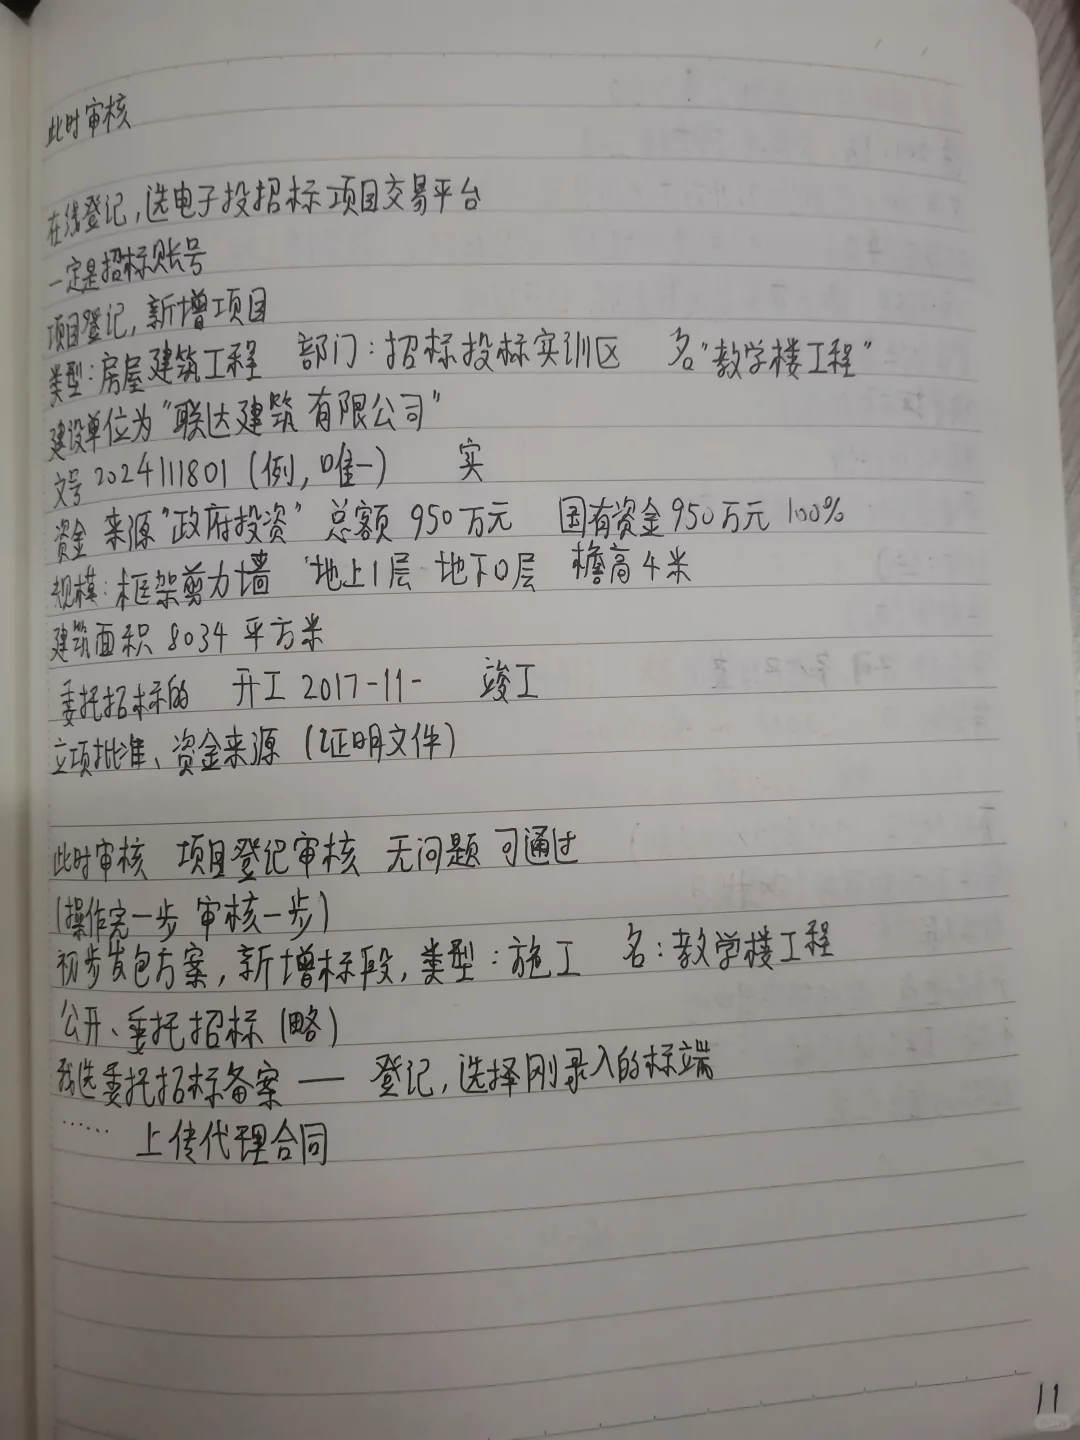 此时审核
在线登记,选电子投招标项目交易平台
一定是招标账号
项目登记,新增项目
类型:房屋建筑工程 部门:招标投标实训区 名"教学楼工程"
建设单位为"联达建筑有限公司"
文号2024111801(例,唯一) 实
资金来源"政府投资" 总额950万元 国有资金950万元 100%
规模:框架剪力墙 地上1层 地下0层 檐高4米
建筑面积 8034 平方米
委托招标的 开工2017-11- 竣工
立项批准、资金来源(证明文件)
此时审核 项目登记审核 无问题可通过
(操作完一步 审核一步)
初步发包方案,新增标段,类型:施工 名:教学楼工程
公开、委托招标(略)
我选委托招标备案——登记,选择刚录入的标端
…… 上传代理合同
11